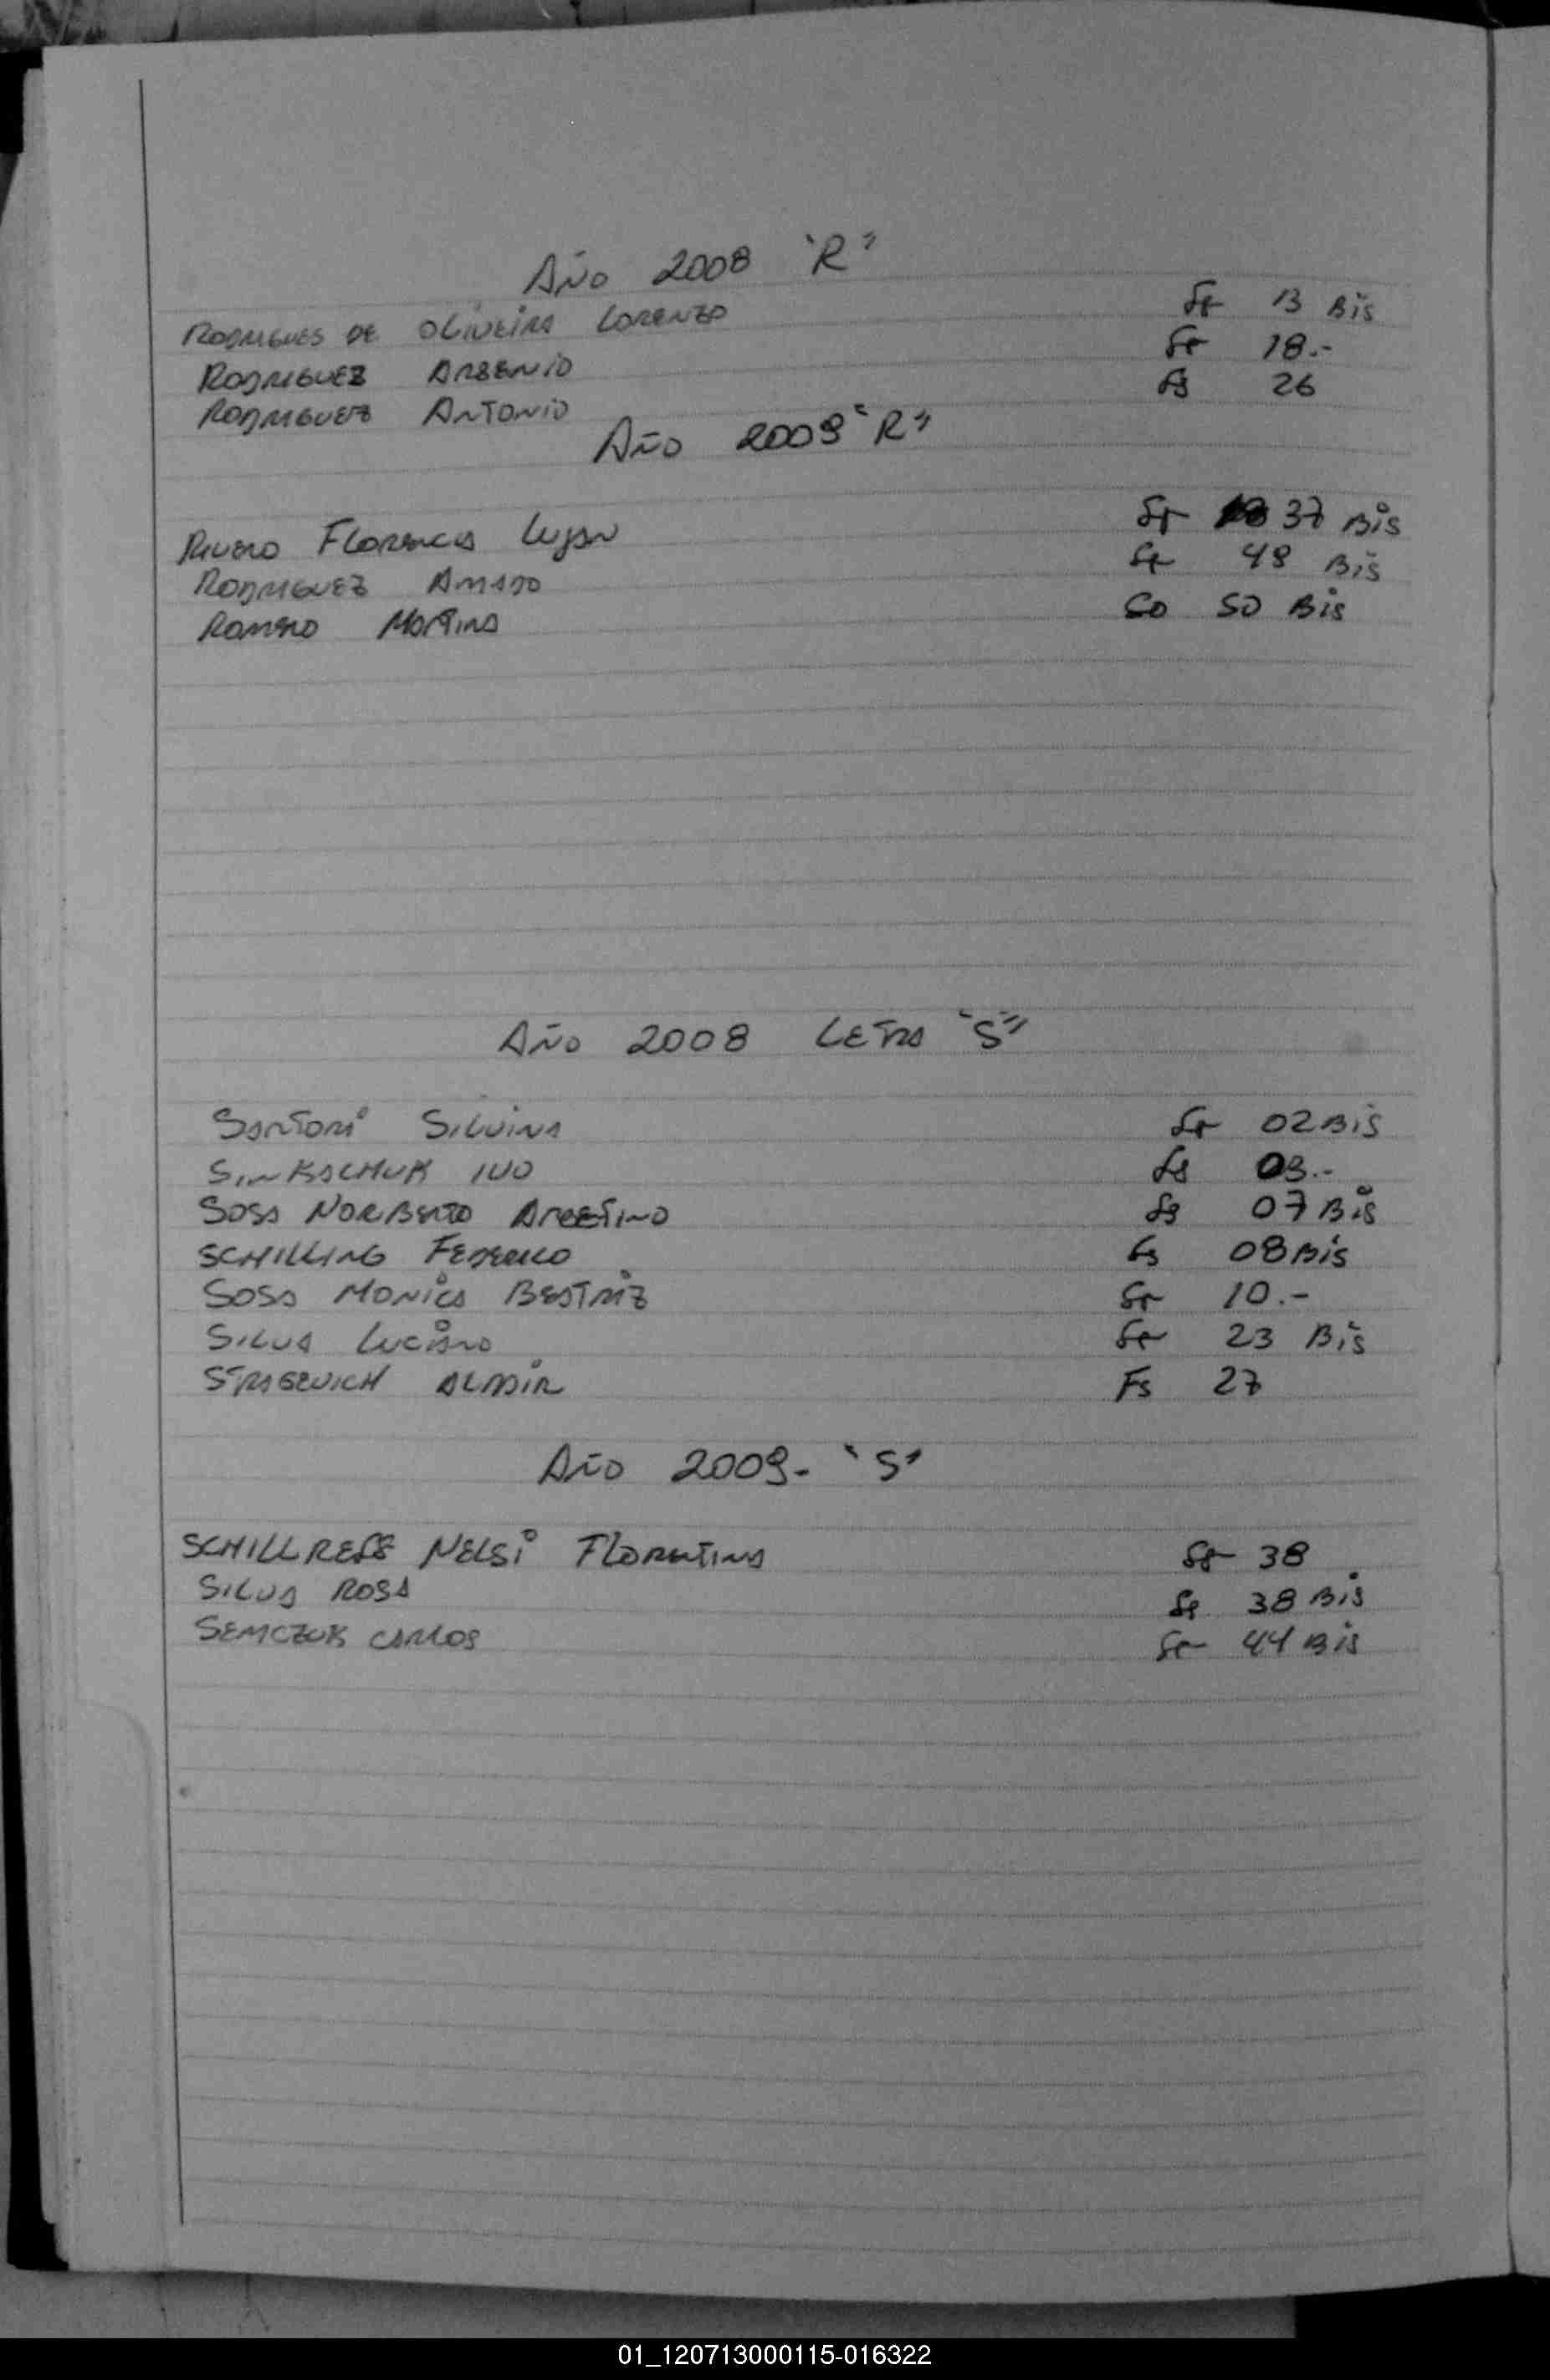 Año 2008 "R"
RODRIGUES DE OLIVEIRA LORENZO Fs 13 Bis
RODRIGUEZ ARSENIO Fs 18.-
RODRIGUEZ ANTONIO Fs 26
Año 2009 "R"
RIVERO FLORENCIA Lujan Fs 37 Bis
RODRIGUEZ AMADO Fs 48 Bis
ROMERO MARTINA Fo 50 Bis
Año 2008 LETRA "S"
SARTORI SILVINA Fs 02 Bis
IVO Fs 03.-
SOSA NORBERTO Fs 07 Bis
SCHILLING FEDERICO Fs 08 Bis
SOSA MONICA BEATRIZ Fs 10.-
SILVA LUCIANO Fs 23 Bis
ALDAIR Fs 27
Año 2009- "S"
NELSI FLORENTINA Fs 38
SILVA ROSA Fs 38 Bis
SEMCZUK CARLOS Fs 44 Bis
01_120713000115-016322